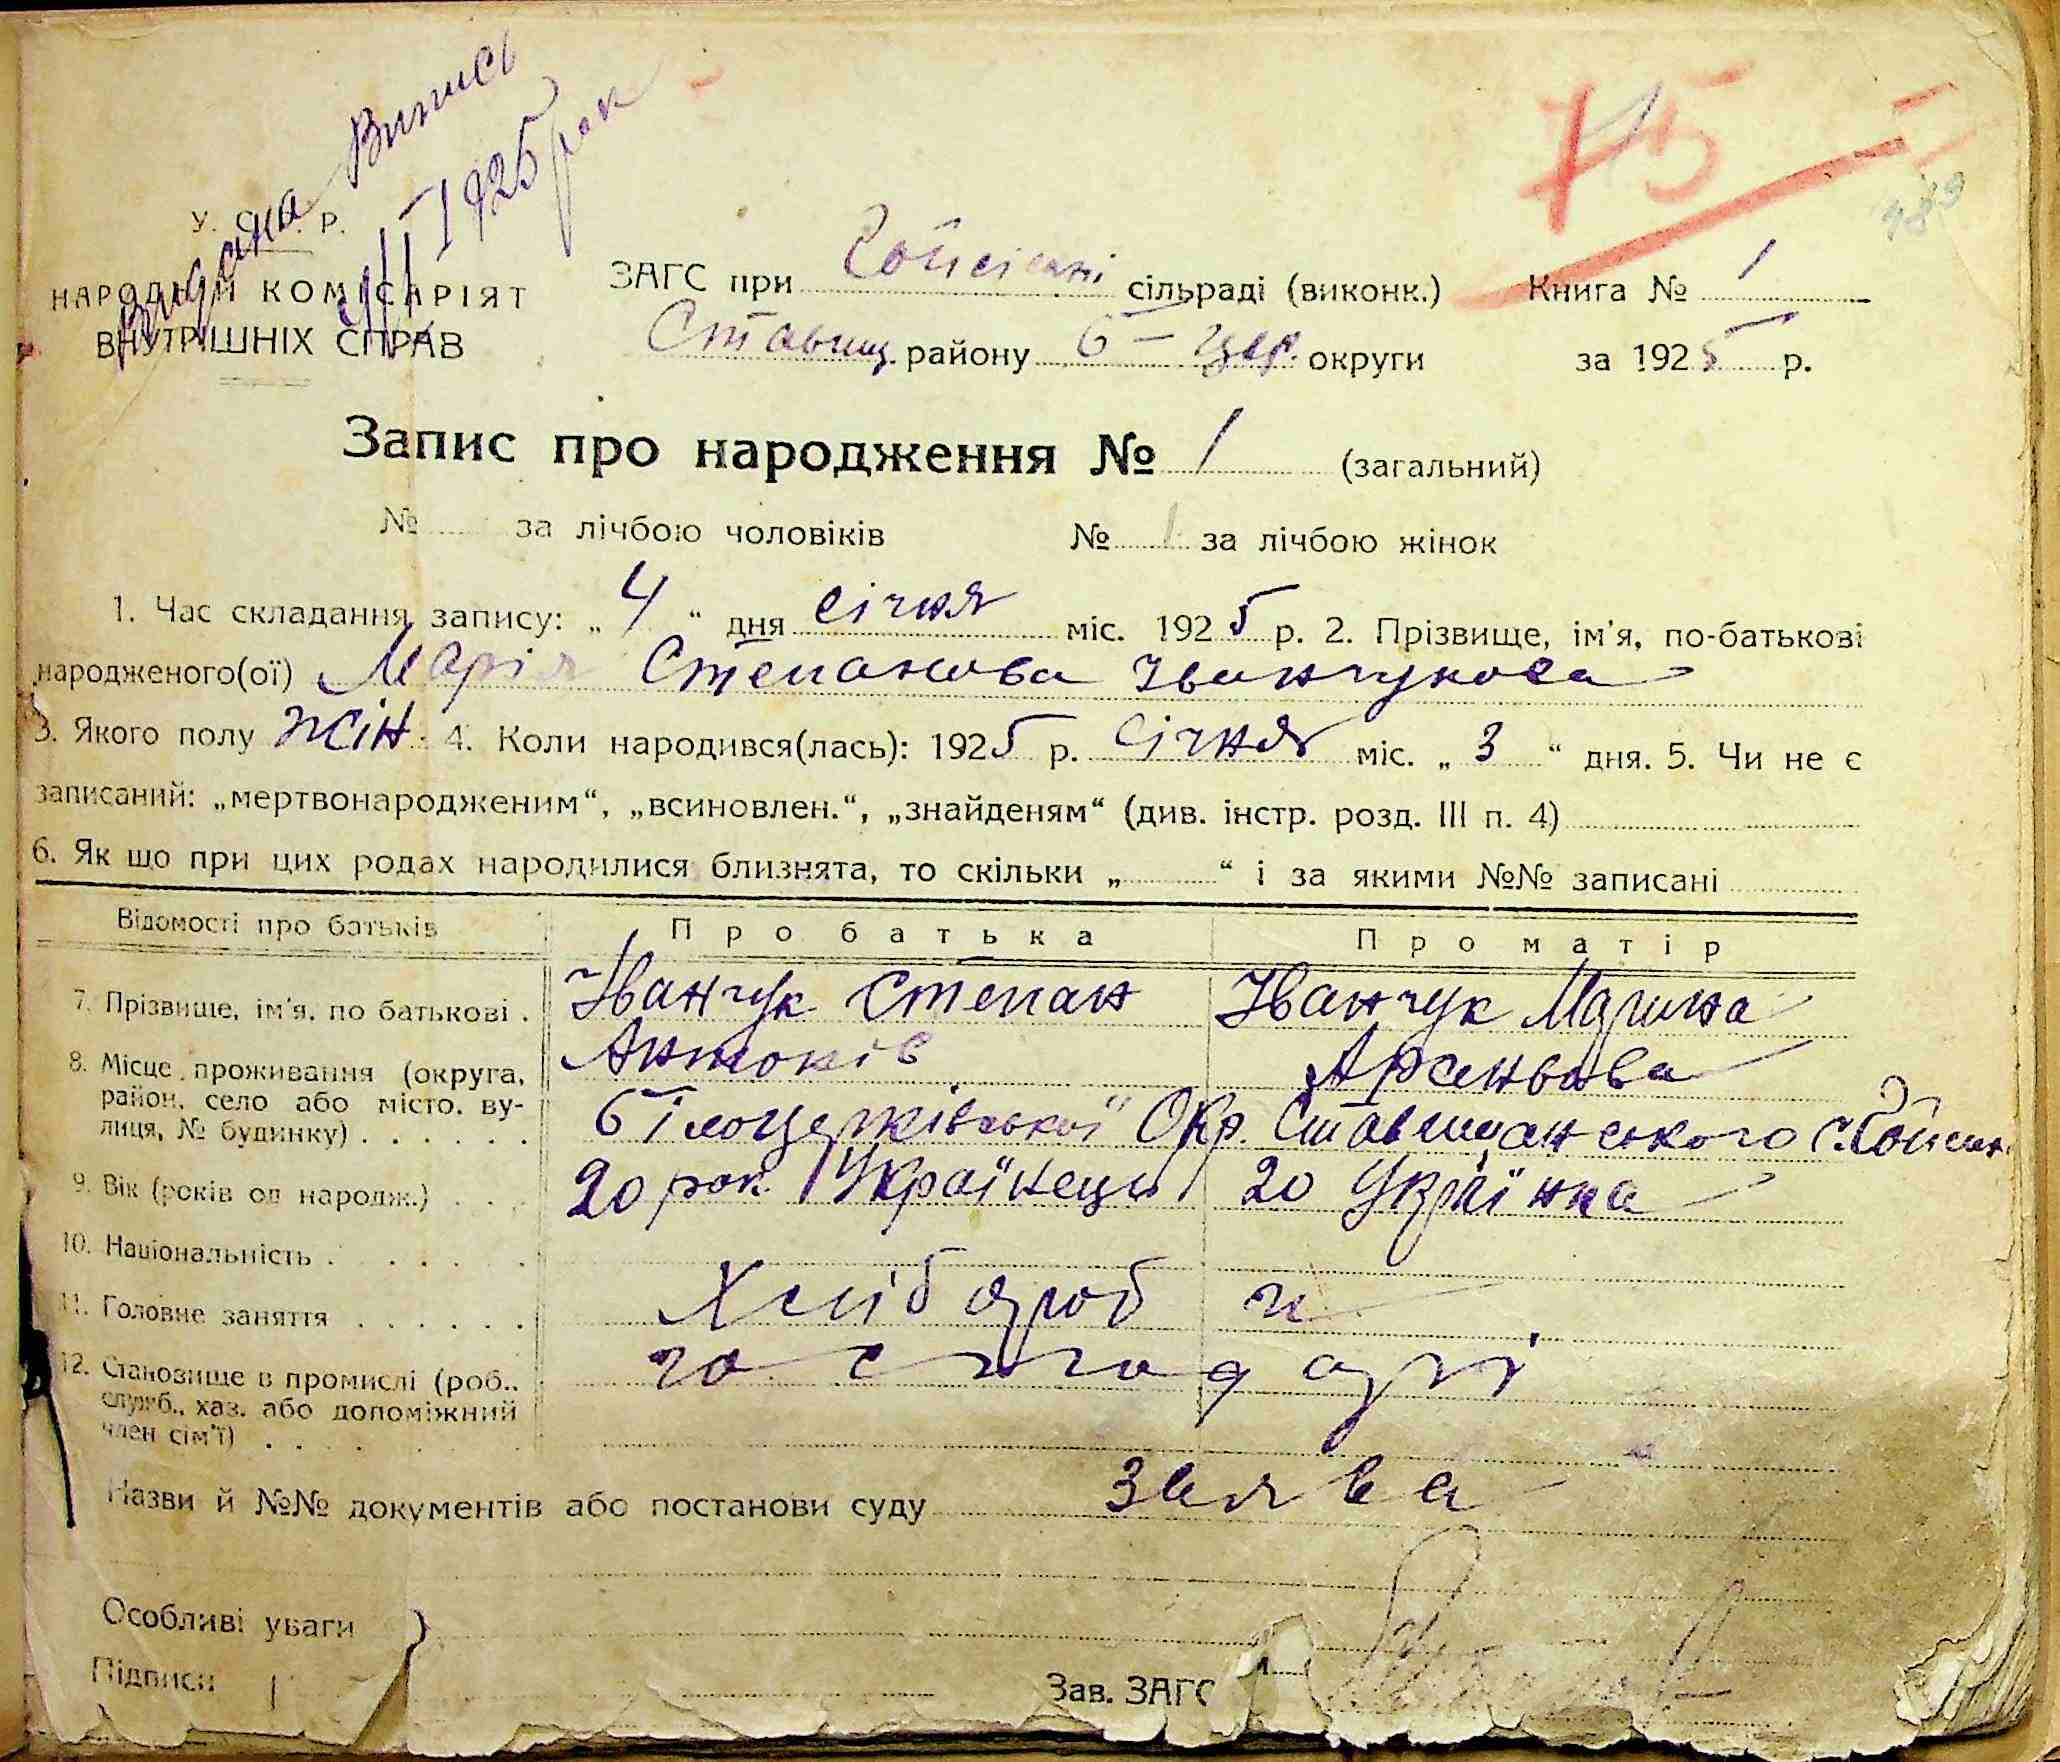 Видана Випись
1925 рок
У. С. Р. Р.
НАРОДНІЙ КОМІСАРІЯТ
ВНУТРІШНІХ СПРАВ
ЗАГС при сільраді (виконк.) Книга № 1
Ставищ. району Б-Цер. округи за 1925 р.
75
Запис про народження № 1 (загальний)
№ за лічбою чоловіків № 1 за лічбою жінок
1. Час складання запису: „ 4 “ дня січня міс. 1925 р. 2. Прізвище, ім'я, по-батькові
народженого(ої) Марія Степанова Іванчукова
3. Якого полу жін. 4. Коли народився(лась): 1925 р. січня міс. „ 3 “ дня. 5. Чи не є
записаний: „мертвонародженим“, „всиновлен.“, „знайденям“ (див. інстр. розд. III п. 4)
6. Як що при цих родах народилися близнята, то скільки „ “ і за якими №№ записані
Відомості про батьків Про батька Про матір
7. Прізвище, ім'я, по батькові . Іванчук Степан Іванчук Марина
Антонів Арсеньова
8. Місце проживання (округа, район, село або місто, ву-
лиця, № будинку) . . . . . . Білоцерківської Окр. Ставищанського
9. Вік (років од народж.) . . . 20 рок. Українець 20 Українка
10. Національність . . . . .
11. Головне заняття . . . . . . Хлібороб и
12. Становище в промислі (роб., господарі
служб., хаз. або допоміжний
член сім'ї) . . . . . .
Назви й №№ документів або постанови суду заява
Особливі уваги
Підписи Зав. ЗАГС